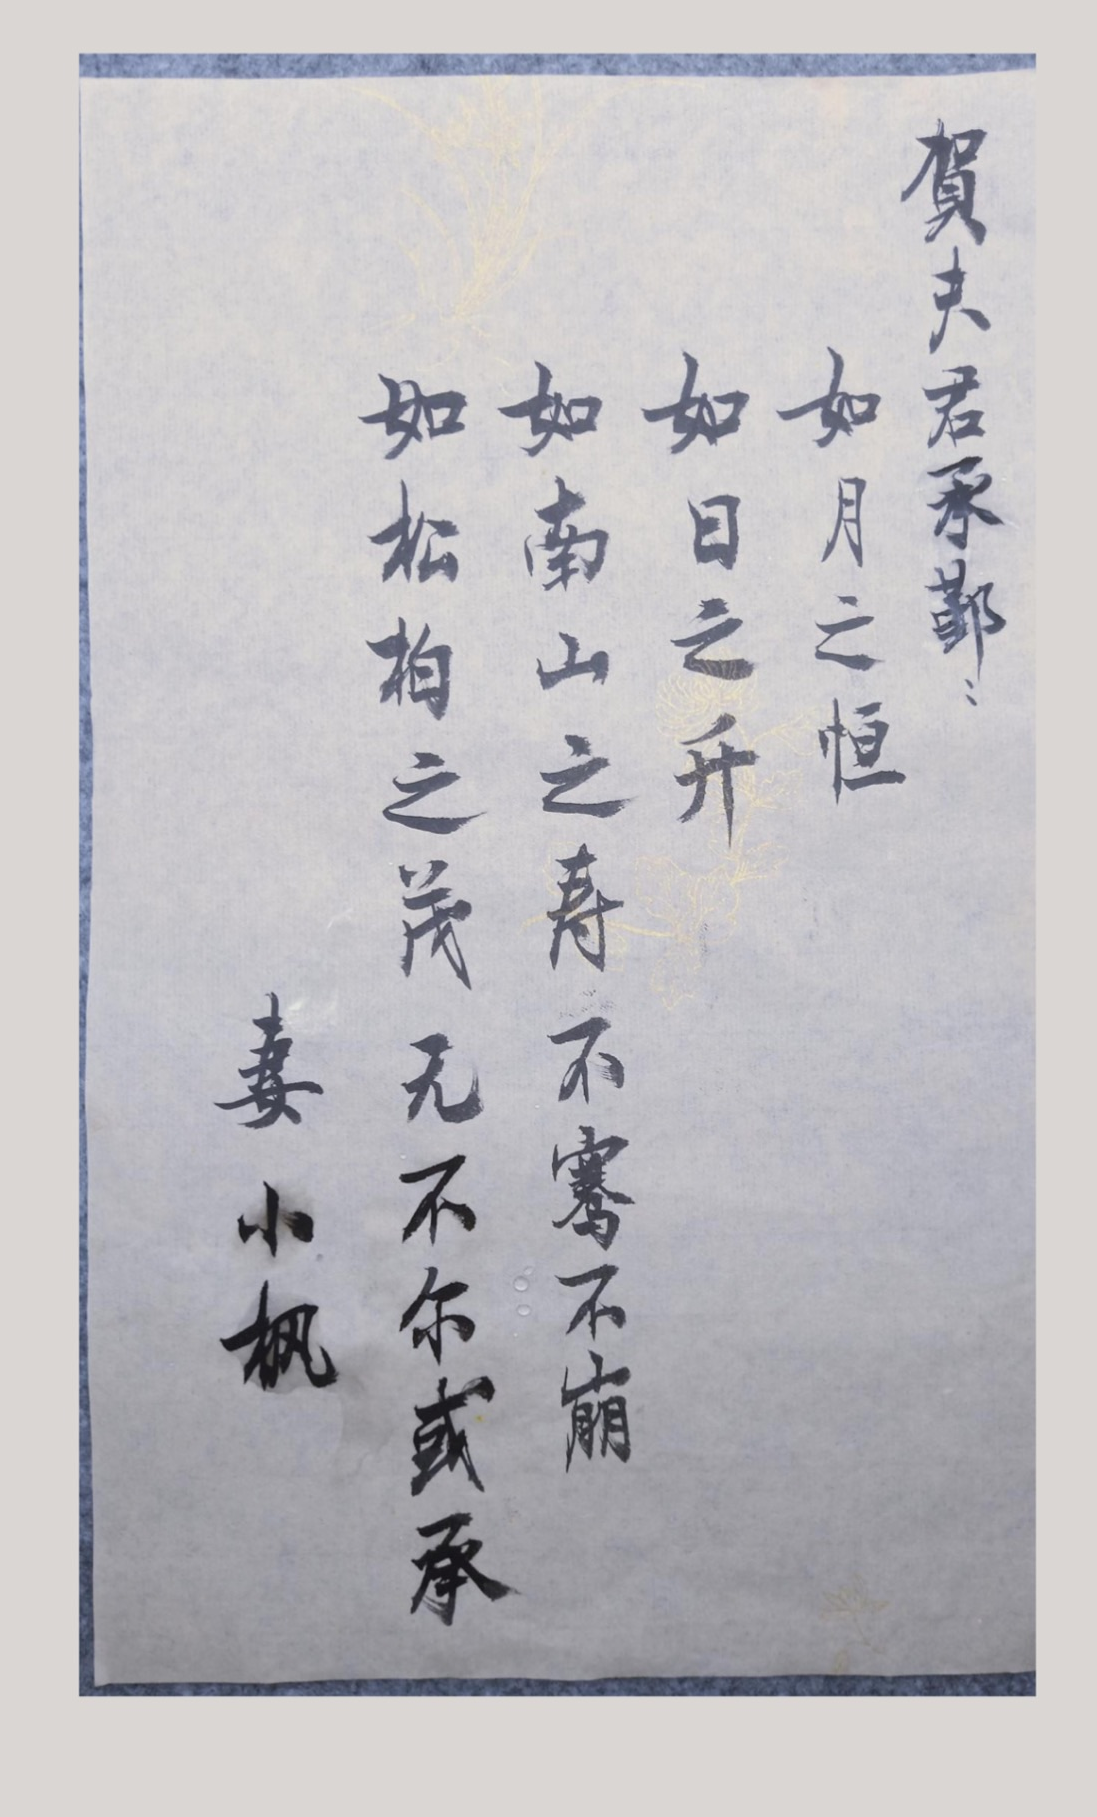 賀夫君承鄞：
如月之恒
如日之升
如南山之寿不骞不崩
如松柏之茂无不尔或承
妻小枫